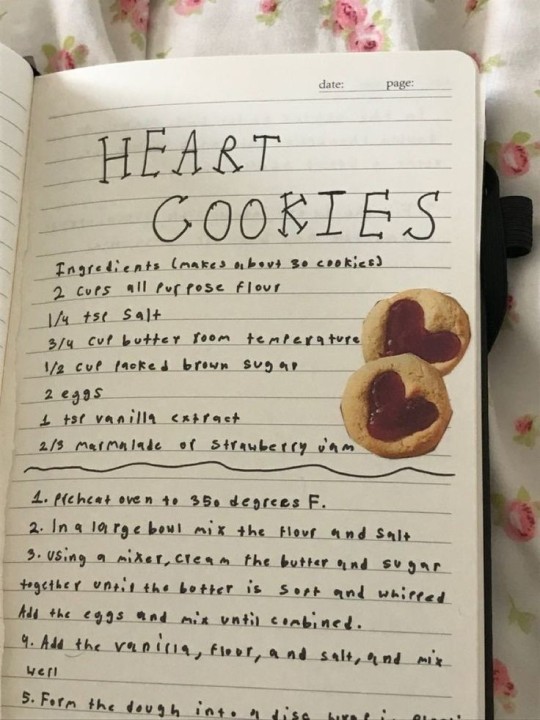 date: page:
HEART
COOKIES
Ingredients (makes about 30 cookies)
2 cups all purpose flour
1/4 tsp salt
3/4 cup butter room temperature
1/2 cup packed brown sugar
2 eggs
1 tsp vanilla extract
2/3 marmalade or strawberry jam
1. preheat oven to 350 degrees F.
2. In a large bowl mix the flour and salt
3. Using a mixer, cream the butter and sugar
together until the butter is soft and whipped
Add the eggs and mix until combined.
4. Add the vanilla, flour, and salt, and mix
well
5. Form the dough into a disc